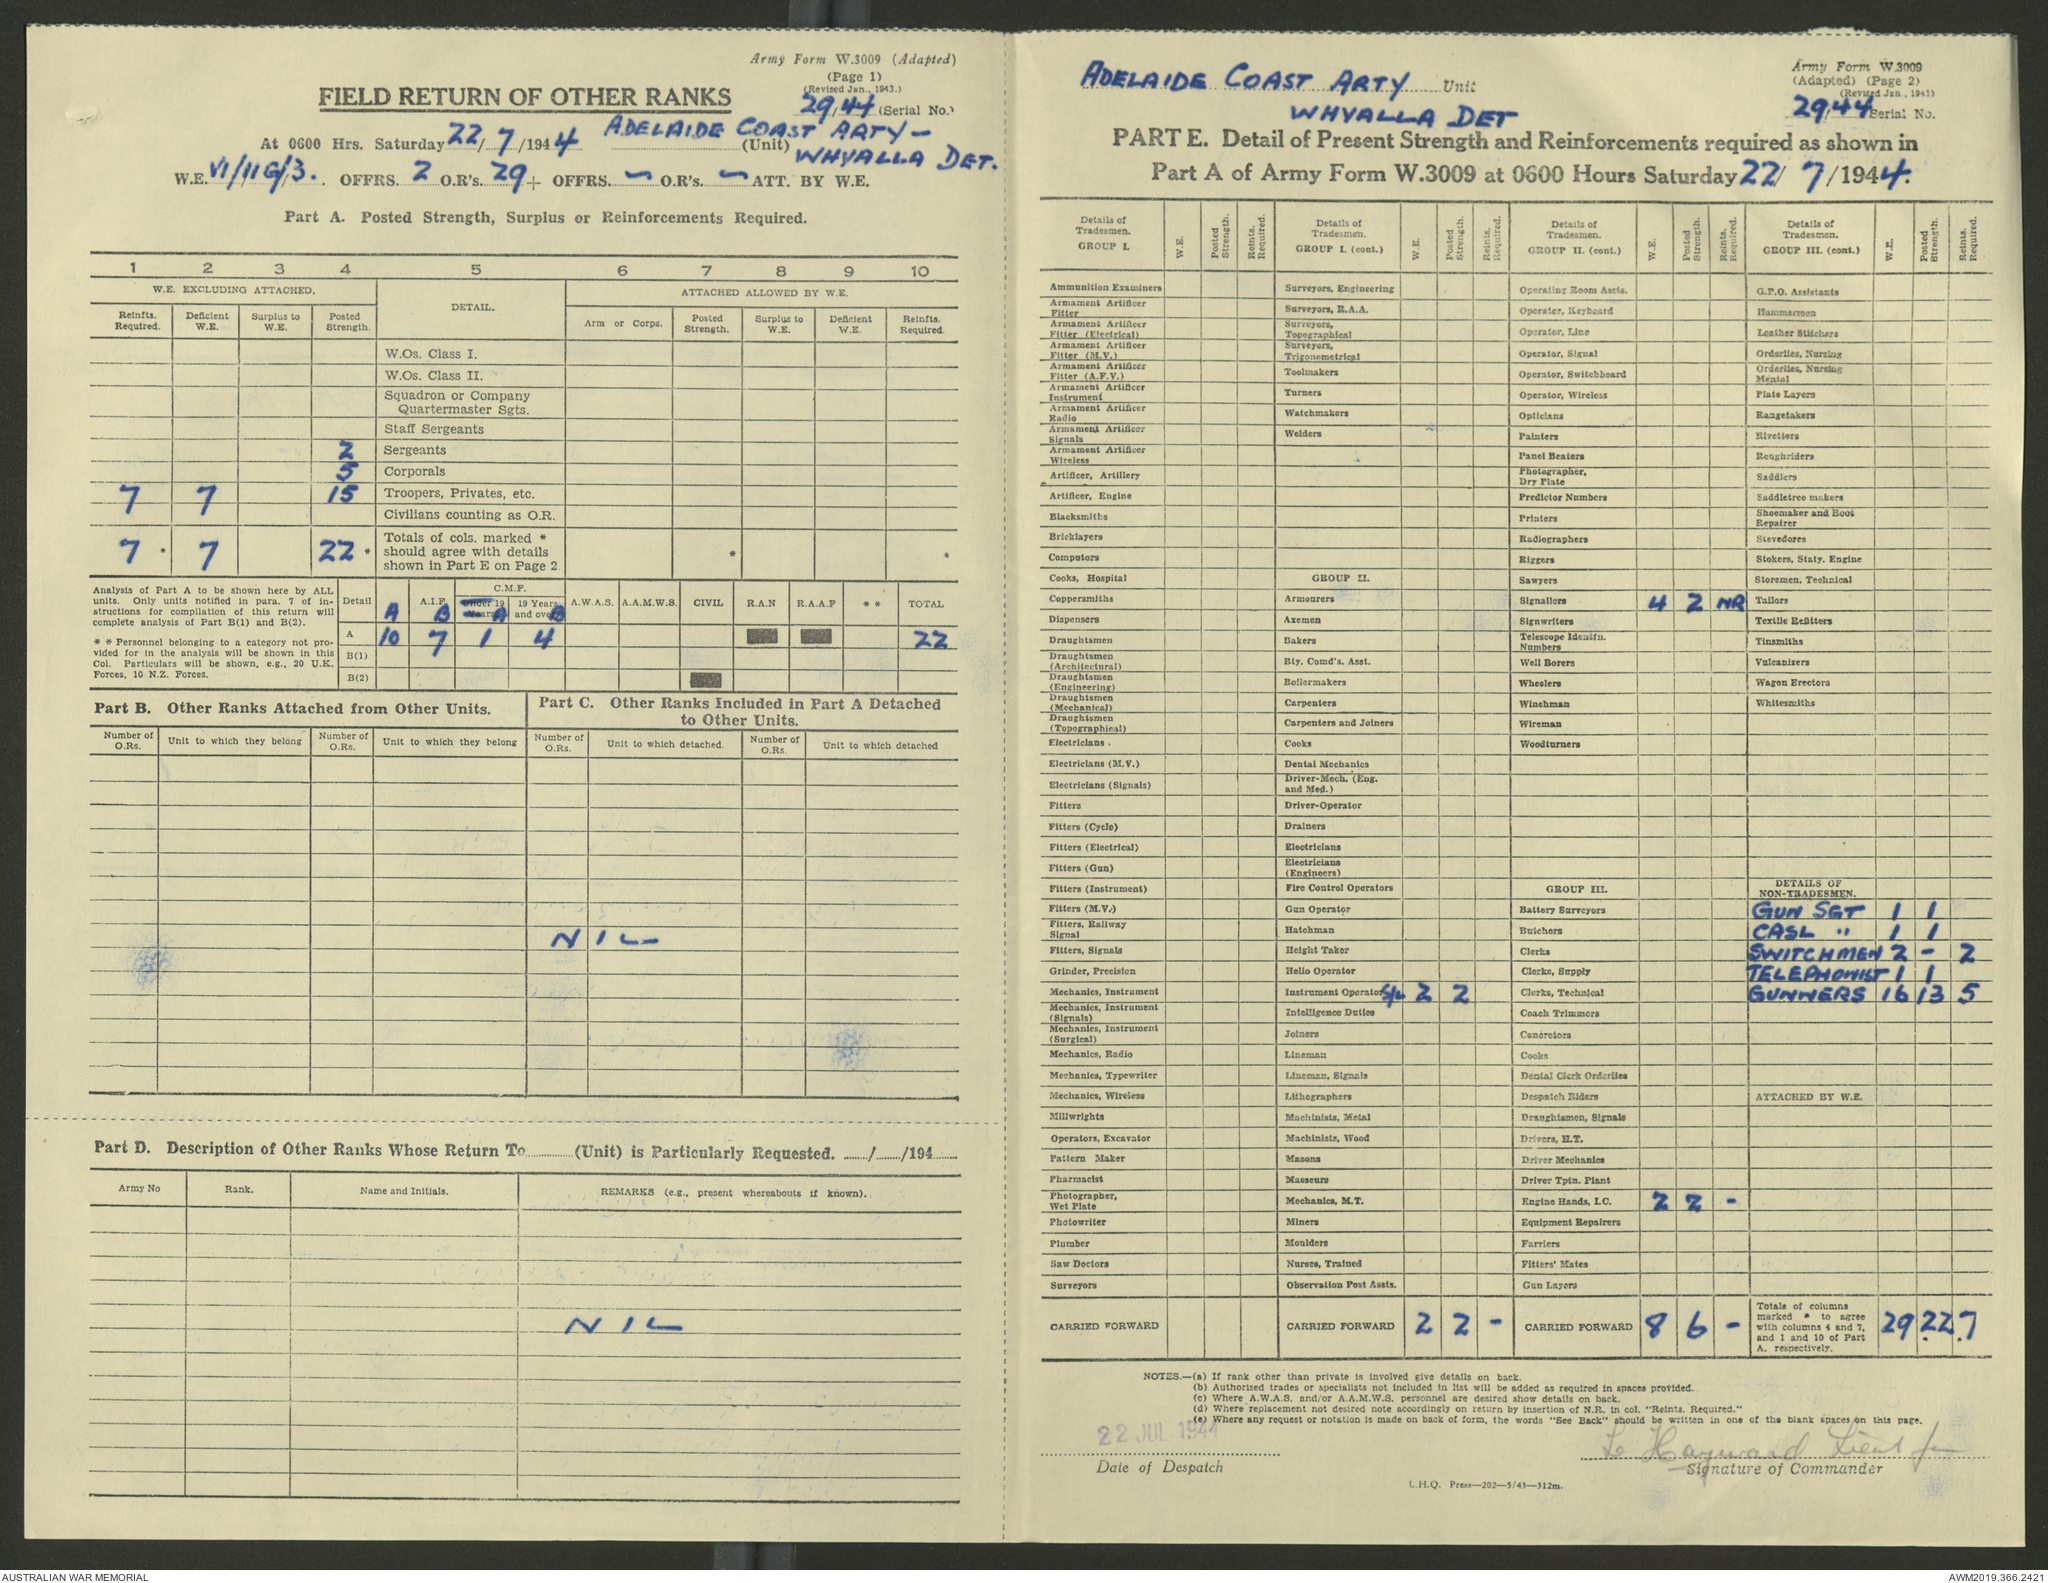 Army Form W.3009 (Adapted)
(Page 1)
(Revised Jan., 1943.)
FIELD RETURN OF OTHER RANKS
29/44 (Serial No.)
At 0600 Hrs. Saturday 22/7/1944 ADELAIDE COAST ARTY - (Unit) WHYALLA DET.
W.E. VI/11G/3. OFFRS. 2 O.R's. 29 + OFFRS. - O.R's. - ATT. BY W.E.
Part A. Posted Strength, Surplus or Reinforcements Required.
1 2 3 4 5 6 7 8 9 10
W.E. EXCLUDING ATTACHED. DETAIL. ATTACHED ALLOWED BY W.E.
Reinfts. Required. Deficient W.E. Surplus to W.E. Posted Strength. Arm or Corps. Posted Strength. Surplus to W.E. Deficient W.E. Reinfts. Required.
W.Os. Class I.
W.Os. Class II.
Squadron or Company
Quartermaster Sgts.
Staff Sergeants
2 Sergeants
5 Corporals
7 7 15 Troopers, Privates, etc.
Civilians counting as O.R.
7 * 7 22 * Totals of cols. marked *
should agree with details
shown in Part E on Page 2 * *
Analysis of Part A to be shown here by ALL
units. Only units notified in para. 7 of in-
structions for compilation of this return will
complete analysis of Part B(1) and B(2).
* * Personnel belonging to a category not pro-
vided for in the analysis will be shown in this
Col. Particulars will be shown, e.g., 20 U.K.
Forces, 10 N.Z. Forces.
Detail A A.I.F. B C.M.F. Under 19 Years A 19 Years and over B A.W.A.S. A.A.M.W.S. CIVIL R.A.N R.A.A.F * * TOTAL
A 10 7 1 4 22
B(1)
B(2)
Part B. Other Ranks Attached from Other Units.
Part C. Other Ranks Included in Part A Detached
to Other Units.
Number of O.Rs. Unit to which they belong Number of O.Rs. Unit to which they belong Number of O.Rs. Unit to which detached. Number of O.Rs. Unit to which detached
NIL
Part D. Description of Other Ranks Whose Return To (Unit) is Particularly Requested. / /194
Army No Rank. Name and Initials. REMARKS (e.g., present whereabouts if known).
NIL
ADELAIDE COAST ARTY Unit
WHYALLA DET
Army Form W.3009
(Adapted) (Page 2)
(Revised Jan., 1943)
29/44 Serial No.
PART E. Detail of Present Strength and Reinforcements required as shown in
Part A of Army Form W.3009 at 0600 Hours Saturday 22/7/1944.
Details of Tradesmen. GROUP I. W.E. Posted Strength. Reinfts. Required.
Ammunition Examiners
Armament Artificer Fitter
Armament Artificer Fitter (Electrical)
Armament Artificer Fitter (M.V.)
Armament Artificer Fitter (A.F.V.)
Armament Artificer Instrument
Armament Artificer Radio
Armament Artificer Signals
Armament Artificer Wireless
Artificer, Artillery
Artificer, Engine
Blacksmiths
Bricklayers
Computors
Cooks, Hospital
Coppersmiths
Dispensers
Draughtsmen
Draughtsmen (Architectural)
Draughtsmen (Engineering)
Draughtsmen (Mechanical)
Draughtsmen (Topographical)
Electricians.
Electricians (M.V.)
Electricians (Signals)
Fitters
Fitters (Cycle)
Fitters (Electrical)
Fitters (Gun)
Fitters (Instrument)
Fitters (M.V.)
Fitters, Railway Signal
Fitters, Signals
Grinder, Precision
Mechanics, Instrument
Mechanics, Instrument (Signals)
Mechanics, Instrument (Surgical)
Mechanics, Radio
Mechanics, Typewriter
Mechanics, Wireless
Millwrights
Operators, Excavator
Pattern Maker
Pharmacist
Photographer, Wet Plate
Photowriter
Plumber
Saw Doctors
Surveyors
CARRIED FORWARD
Details of Tradesmen. GROUP I. (cont.) W.E. Posted Strength. Reinfts. Required.
Surveyors, Engineering
Surveyors, R.A.A.
Surveyors, Topographical
Surveyors, Trigonometrical
Toolmakers
Turners
Watchmakers
Welders
GROUP II.
Armourers
Axemen
Bakers
Bty. Comd's. Asst.
Boilermakers
Carpenters
Carpenters and Joiners
Cooks
Dental Mechanics
Driver-Mech. (Eng. and Med.)
Driver-Operator
Drainers
Electricians
Electricians (Engineers)
Fire Control Operators
Gun Operator
Hatchman
Height Taker
Helio Operator
Instrument Operator S/L 2 2
Intelligence Duties
Joiners
Lineman
Lineman, Signals
Lithographers
Machinists, Metal
Machinists, Wood
Masons
Masseurs
Mechanics, M.T.
Miners
Moulders
Nurses, Trained
Observation Post Assts.
CARRIED FORWARD 2 2 -
Details of Tradesmen. GROUP II. (cont.) W.E. Posted Strength. Reinfts. Required.
Operating Room Assts.
Operator, Keyboard
Operator, Line
Operator, Signal
Operator, Switchboard
Operator, Wireless
Opticians
Painters
Panel Beaters
Photographer, Dry Plate
Predictor Numbers
Printers
Radiographers
Riggers
Sawyers
Signallers 4 2 NR
Signwriters
Telescope Identfn. Numbers
Well Borers
Wheelers
Winchman
Wireman
Woodturners
GROUP III.
Battery Surveyors
Butchers
Clerks
Clerks, Supply
Clerks, Technical
Coach Trimmers
Concretors
Cooks
Dental Clerk Orderlies
Despatch Riders
Draughtsmen, Signals
Drivers, H.T.
Driver Mechanics
Driver Tptn. Plant
Engine Hands, I.C. 2 2 -
Equipment Repairers
Farriers
Fitters' Mates
Gun Layers
CARRIED FORWARD 8 6 -
Details of Tradesmen. GROUP III. (cont.) W.E. Posted Strength. Reinfts. Required.
G.P.O. Assistants
Hammermen
Leather Stitchers
Orderlies, Nursing
Orderlies, Nursing Mental
Plate Layers
Rangetakers
Rivetters
Roughriders
Saddlers
Saddletree makers
Shoemaker and Boot Repairer
Stevedores
Stokers, Staty. Engine
Storemen, Technical
Tailors
Textile Refitters
Tinsmiths
Vulcanizers
Wagon Erectors
Whitesmiths
DETAILS OF NON-TRADESMEN.
GUN SGT 1 1
CASL " 1 1
SWITCHMEN 2 - 2
TELEPHONIST 1 1
GUNNERS 16 13 5
ATTACHED BY W.E.
Totals of columns
marked * to agree
with columns 4 and 7,
and 1 and 10 of Part
A. respectively. 29 22 7
NOTES.—(a) If rank other than private is involved give details on back.
(b) Authorised trades or specialists not included in list will be added as required in spaces provided.
(c) Where A.W.A.S. and/or A.A.M.W.S. personnel are desired show details on back.
(d) Where replacement not desired note accordingly on return by insertion of N.R. in col. "Reints. Required."
(e) Where any request or notation is made on back of form, the words "See Back" should be written in one of the blank spaces on this page.
22 JUL 1944
Date of Despatch
Hayward Lieut for
Signature of Commander
L.H.Q. Press—202—5/43—312m.
AUSTRALIAN WAR MEMORIAL
AWM2019.366.2421